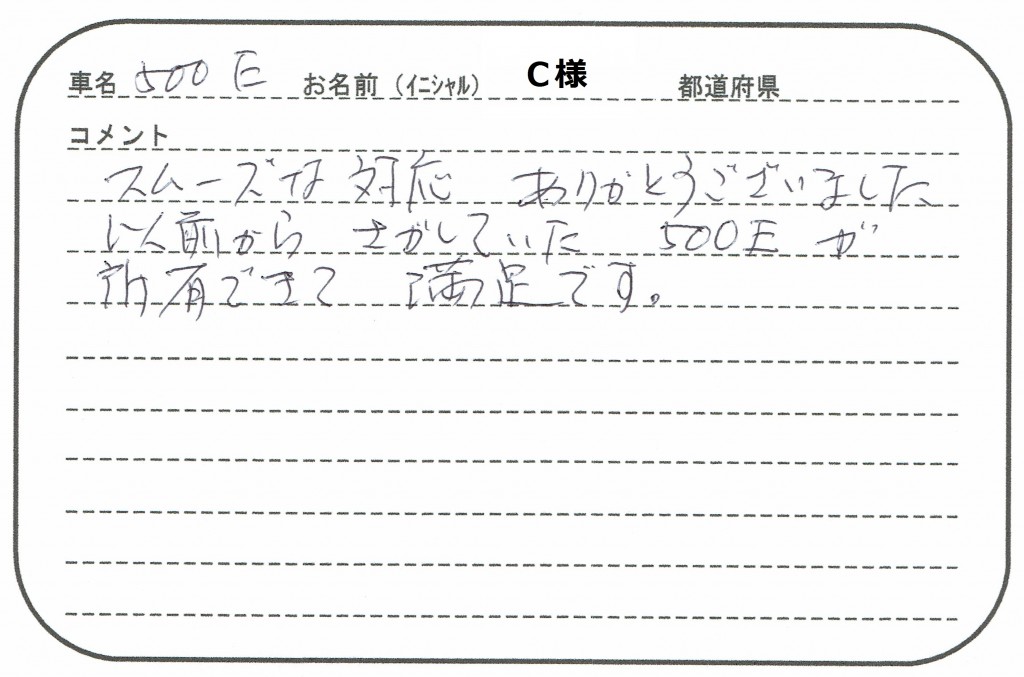 車名 500 E お名前（イニシャル） C様 都道府県
コメント
スムーズな対応 ありがとうございました、
以前から さがしていた 500E が
所有できて 満足です。